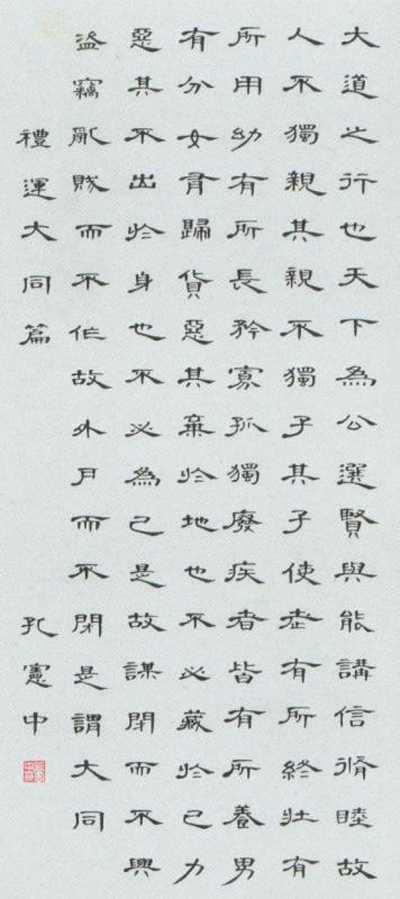 大道之行也天下為公選賢與能講信脩睦故
人不獨親其親不獨子其子使老有所終壯有
所用幼有所長矜寡孤獨廢疾者皆有所養男
有分女有歸貨惡其棄於地也不必藏於己力
惡其不出於身也不必為己是故謀閉而不興
盜竊亂賊而不作故外戶而不閉是謂大同
禮運大同篇 孔憲中